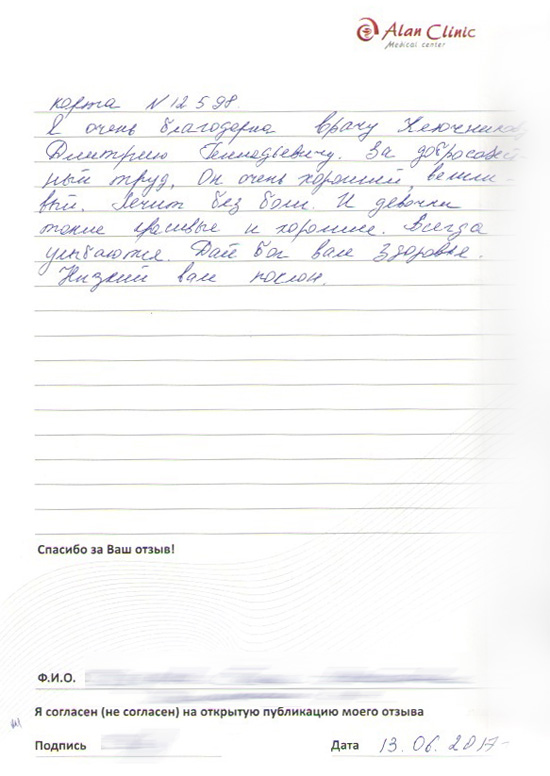 Alan Clinic
Medical center
карта N 12598.
Я очень благодарна врачу Ключникову
Дмитрию Геннадьевичу. За добросовест-
ный труд. Он очень хороший, вежли-
вый. Лечит без боли. И девочки
такие красивые и хорошие. Всегда
улыбаются. Дай бог вам здоровья.
Низкий вам поклон.
Спасибо за Ваш отзыв!
Ф.И.О.
Я согласен (не согласен) на открытую публикацию моего отзыва
Подпись
Дата 13.06.2017